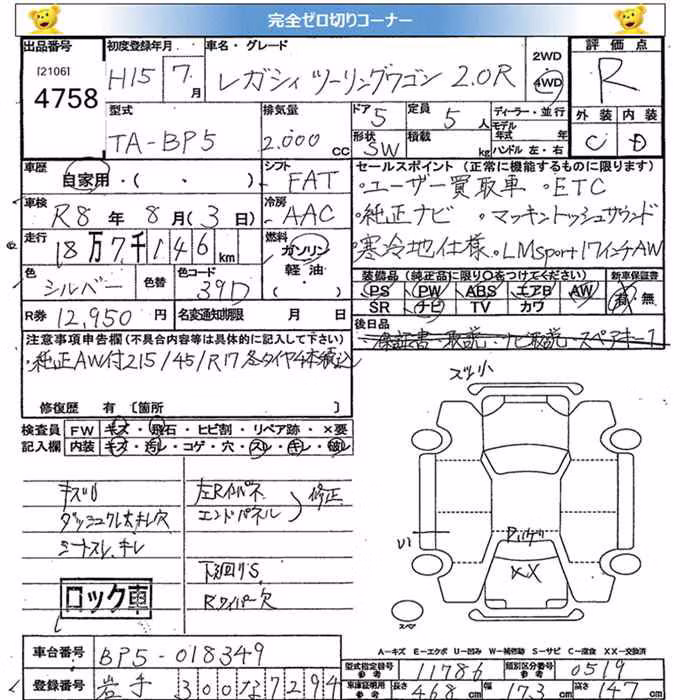 完全ゼロ切りコーナー
出品番号 初度登録年月 車名・グレード 2WD 評価点
[2106] 4758 H15年 7月 レガシィ ツーリングワゴン 2.0R 4WD R
型式 排気量 ドア 定員 ディーラー・並行 外装 内装
TA-BP5 2.000cc 5 5人 モデル年式 年 C D
形状 SW 積載 kg ハンドル 左・右
車歴 自家用・( ・ ) シフト FAT セールスポイント (正常に機能するものに限ります)
・ユーザー買取車 ・ETC
車検 R8年 8月(3日) 冷房 AAC
・純正ナビ ・マッキントッシュサウンド
走行 18万7千146km 燃料 ガソリン 軽油 ( )
・寒冷地仕様 ・LMsport17インチAW
色 シルバー 色替 色コード 39D
装備品 (純正品に限り○をつけてください) 新車保証書
PS PW ABS エアB AW 有・無
SR ナビ TV カワ
R券 12,950円 名変通知期限 月 日
後日品 保証書・取説・ナビ取説・スペアキー1
注意事項申告欄 (不具合内容等は具体的に記入して下さい)
・純正AW付215/45/R17 冬タイヤ4本積込
修復歴 有 [箇所 ]
検査員記入欄 FW キズ・飛石・ヒビ割・リペア跡・×要
内装 キズ・汚レ・コゲ・穴・スレ・キレ・破レ
ズレ小
キズ
ダッシュクレ大キレ穴
シートスレ、キレ
左Rインパネ
エンドパネル
修正
下回りS
Rワイパー欠
ロック車
XX
スペア
A-キズ E-エクボ U-凹み W-補修跡 S-サビ C-腐食 XX-交換済
車台番号 BP5-018349
型式指定番号 参考 11786 類別区分番号 参考 0519
登録番号 岩手 300 な 7294
車庫証明用 参考 長さ 468cm 幅 173cm 高さ 147cm